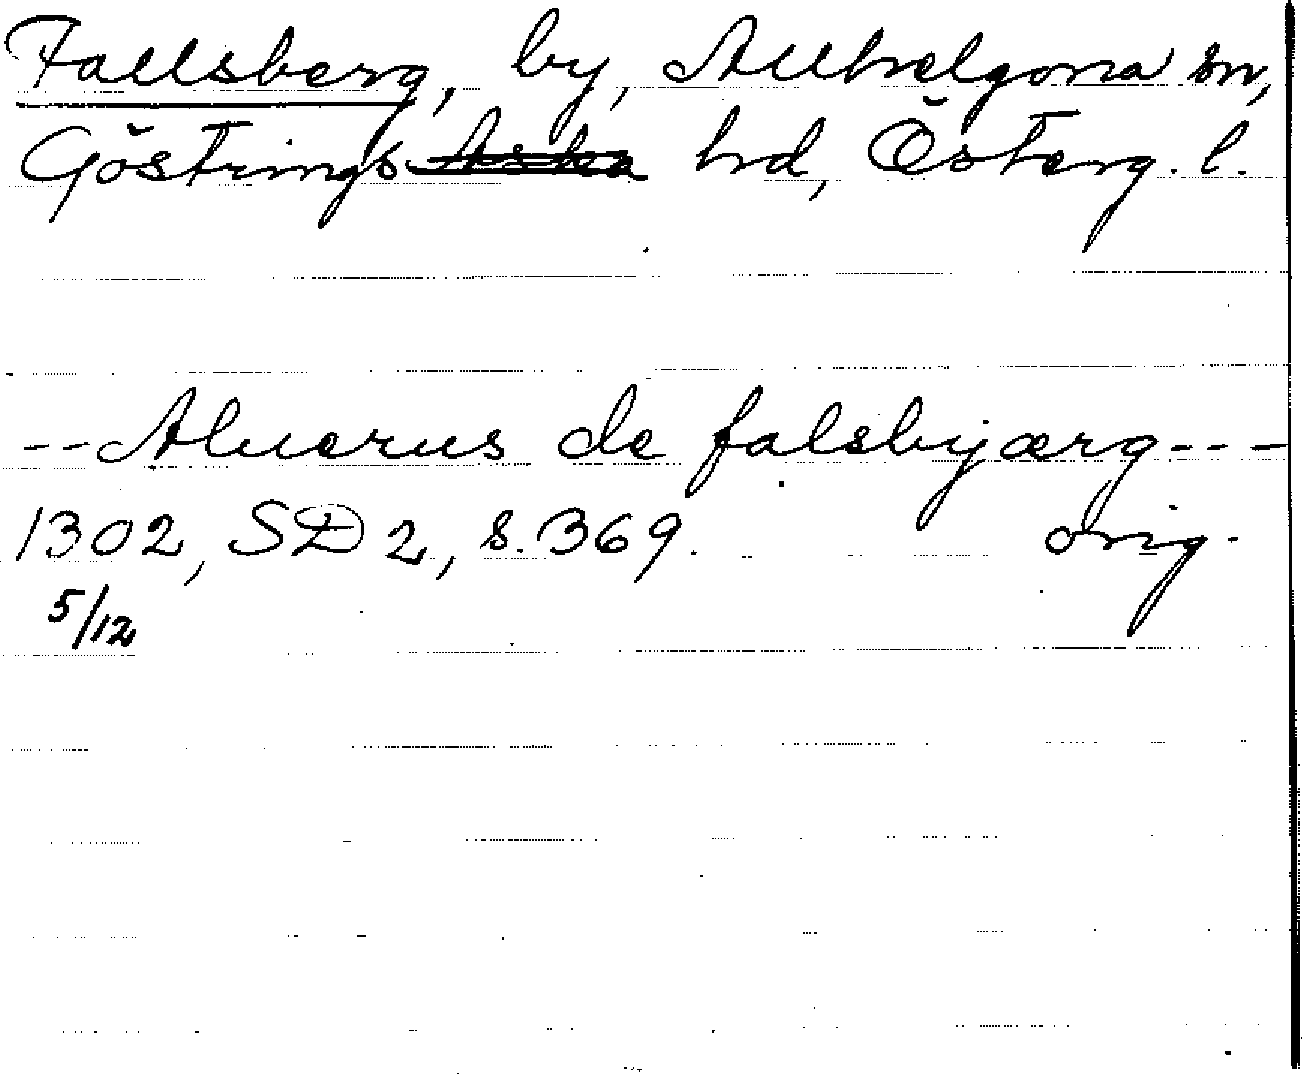 Fallsberg, by, Allhelgona sn,
Göstrings Aska hd, Österg. l.
-- Aluerus de falsbyærg ---
1302, SD 2, s. 369. orig.
5/12